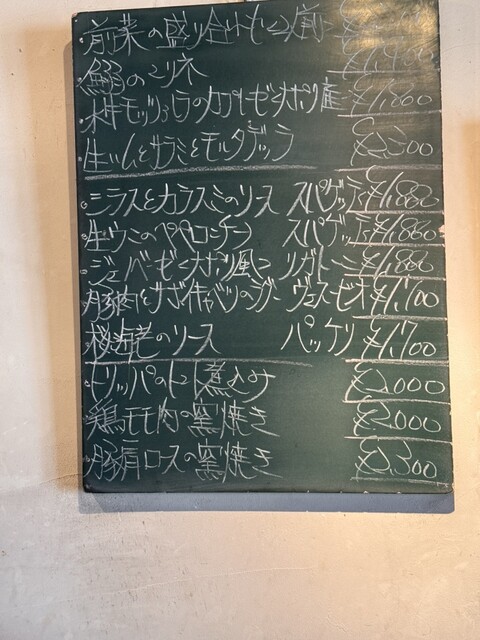 前菜の盛り合わせ2人前
鰯のマリネ
水牛モッツァレラのカプレーゼ ナポリ産 ¥1,800
生ハムとサラミとモルタデッラ ¥2,300
シラスとカラスミのソース スパゲッティ ¥1,800
生ウニのペペロンチーノ スパゲッティ ¥1,800
ジェノベーゼ ナポリ風 リガトーニ ¥1,800
豚肉とサボイキャベツのラグー ヴェスービオ ¥1,700
桜海老のソース パッケリ ¥1,700
トリッパのトマト煮込み ¥2,000
鶏モモ肉の窯焼き ¥2,000
豚肩ロースの窯焼き ¥2,300